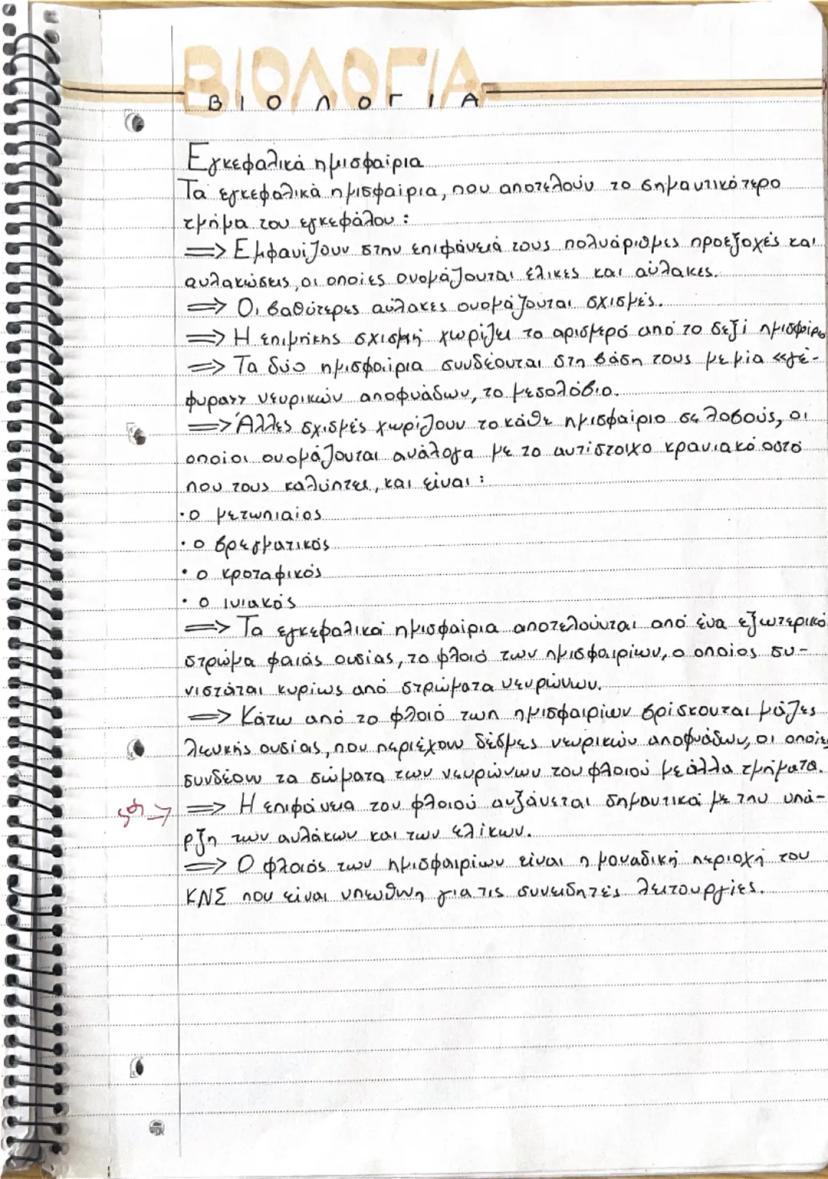 ΒΙΟΛΟΓΙΑ
ΒΙΟΛΟΓΙΑ
Εγκεφαλικά ημισφαίρια
Τα εγκεφαλικά ημισφαίρια, που αποτελούν το σημαντικότερο
τμήμα του εγκεφάλου:
⇒ Εμφανίζουν στην επιφάνειά τους πολυάριθμες προεξοχές και
αυλακώσεις, οι οποίες ονομάζονται έλικες και αύλακες.
⇒ Οι βαθύτερες αύλακες ονομάζονται σχισμές.
⇒ Η επιμήκης σχισμή χωρίζει το αριστερό από το δεξί ημισφαίριο
⇒ Τα δύο ημισφαίρια συνδέονται στη βάση τους με μία «γέ-
φυρα» νευρικών αποφυάδων, το μεσολόβιο.
⇒ Άλλες σχισμές χωρίζουν το κάθε ημισφαίριο σε λοβούς, οι
οποίοι ονομάζονται ανάλογα με το αντίστοιχο κρανιακό οστό
που τους καλύπτει, και είναι:
· ο μετωπιαίος
· ο βρεγματικός
· ο κροταφικός
· ο ινιακός
⇒ Τα εγκεφαλικά ημισφαίρια αποτελούνται από ένα εξωτερικό
στρώμα φαιάς ουσίας, το φλοιό των ημισφαιρίων, ο οποίος συ-
νιστάται κυρίως από στρώματα νευρώνων.
⇒ Κάτω από το φλοιό των ημισφαιρίων βρίσκονται μάζες
λευκής ουσίας, που περιέχουν δέσμες νευρικών αποφυάδων, οι οποίες
συνδέουν τα σώματα των νευρώνων του φλοιού με άλλα τμήματα.
⇒ Η επιφάνεια του φλοιού αυξάνεται σημαντικά με την ύπα-
ρξη των αυλάκων και των ελίκων.
⇒ Ο φλοιός των ημισφαιρίων είναι η μοναδική περιοχή του
ΚΝΣ που είναι υπεύθυνη για τις συνειδητές λειτουργίες.